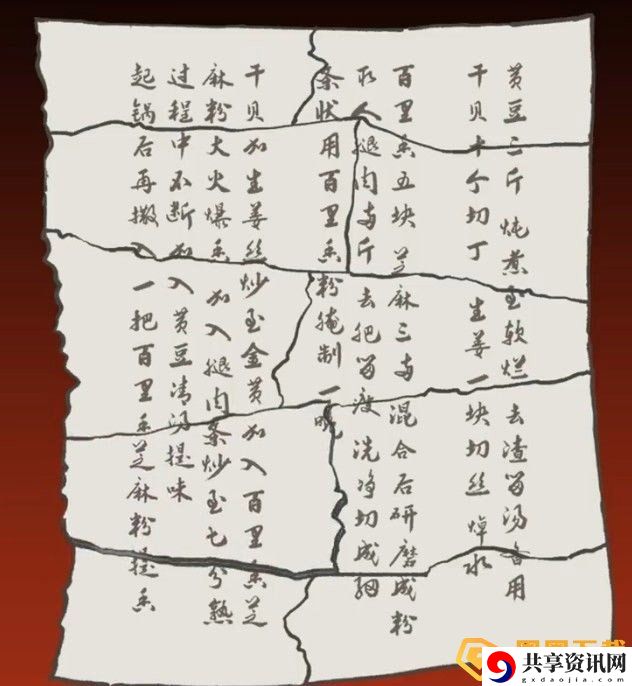 黄豆三斤 炖煮至软烂 去渣留汤备用
干贝十个切丁 生姜一块切丝 焯水
百里香五块 芝麻三两 混合后研磨成粉
取人腿肉两斤 去肥留瘦 洗净切成细
条状用百里香粉腌制一晚
干贝加生姜丝炒至金黄加入百里香芝
麻粉大火爆香 加入腿肉条炒至七分熟
过程中不断加入黄豆清汤提味
起锅后再撒入一把百里香芝麻粉提香
共享资讯网
gxdaojia.com